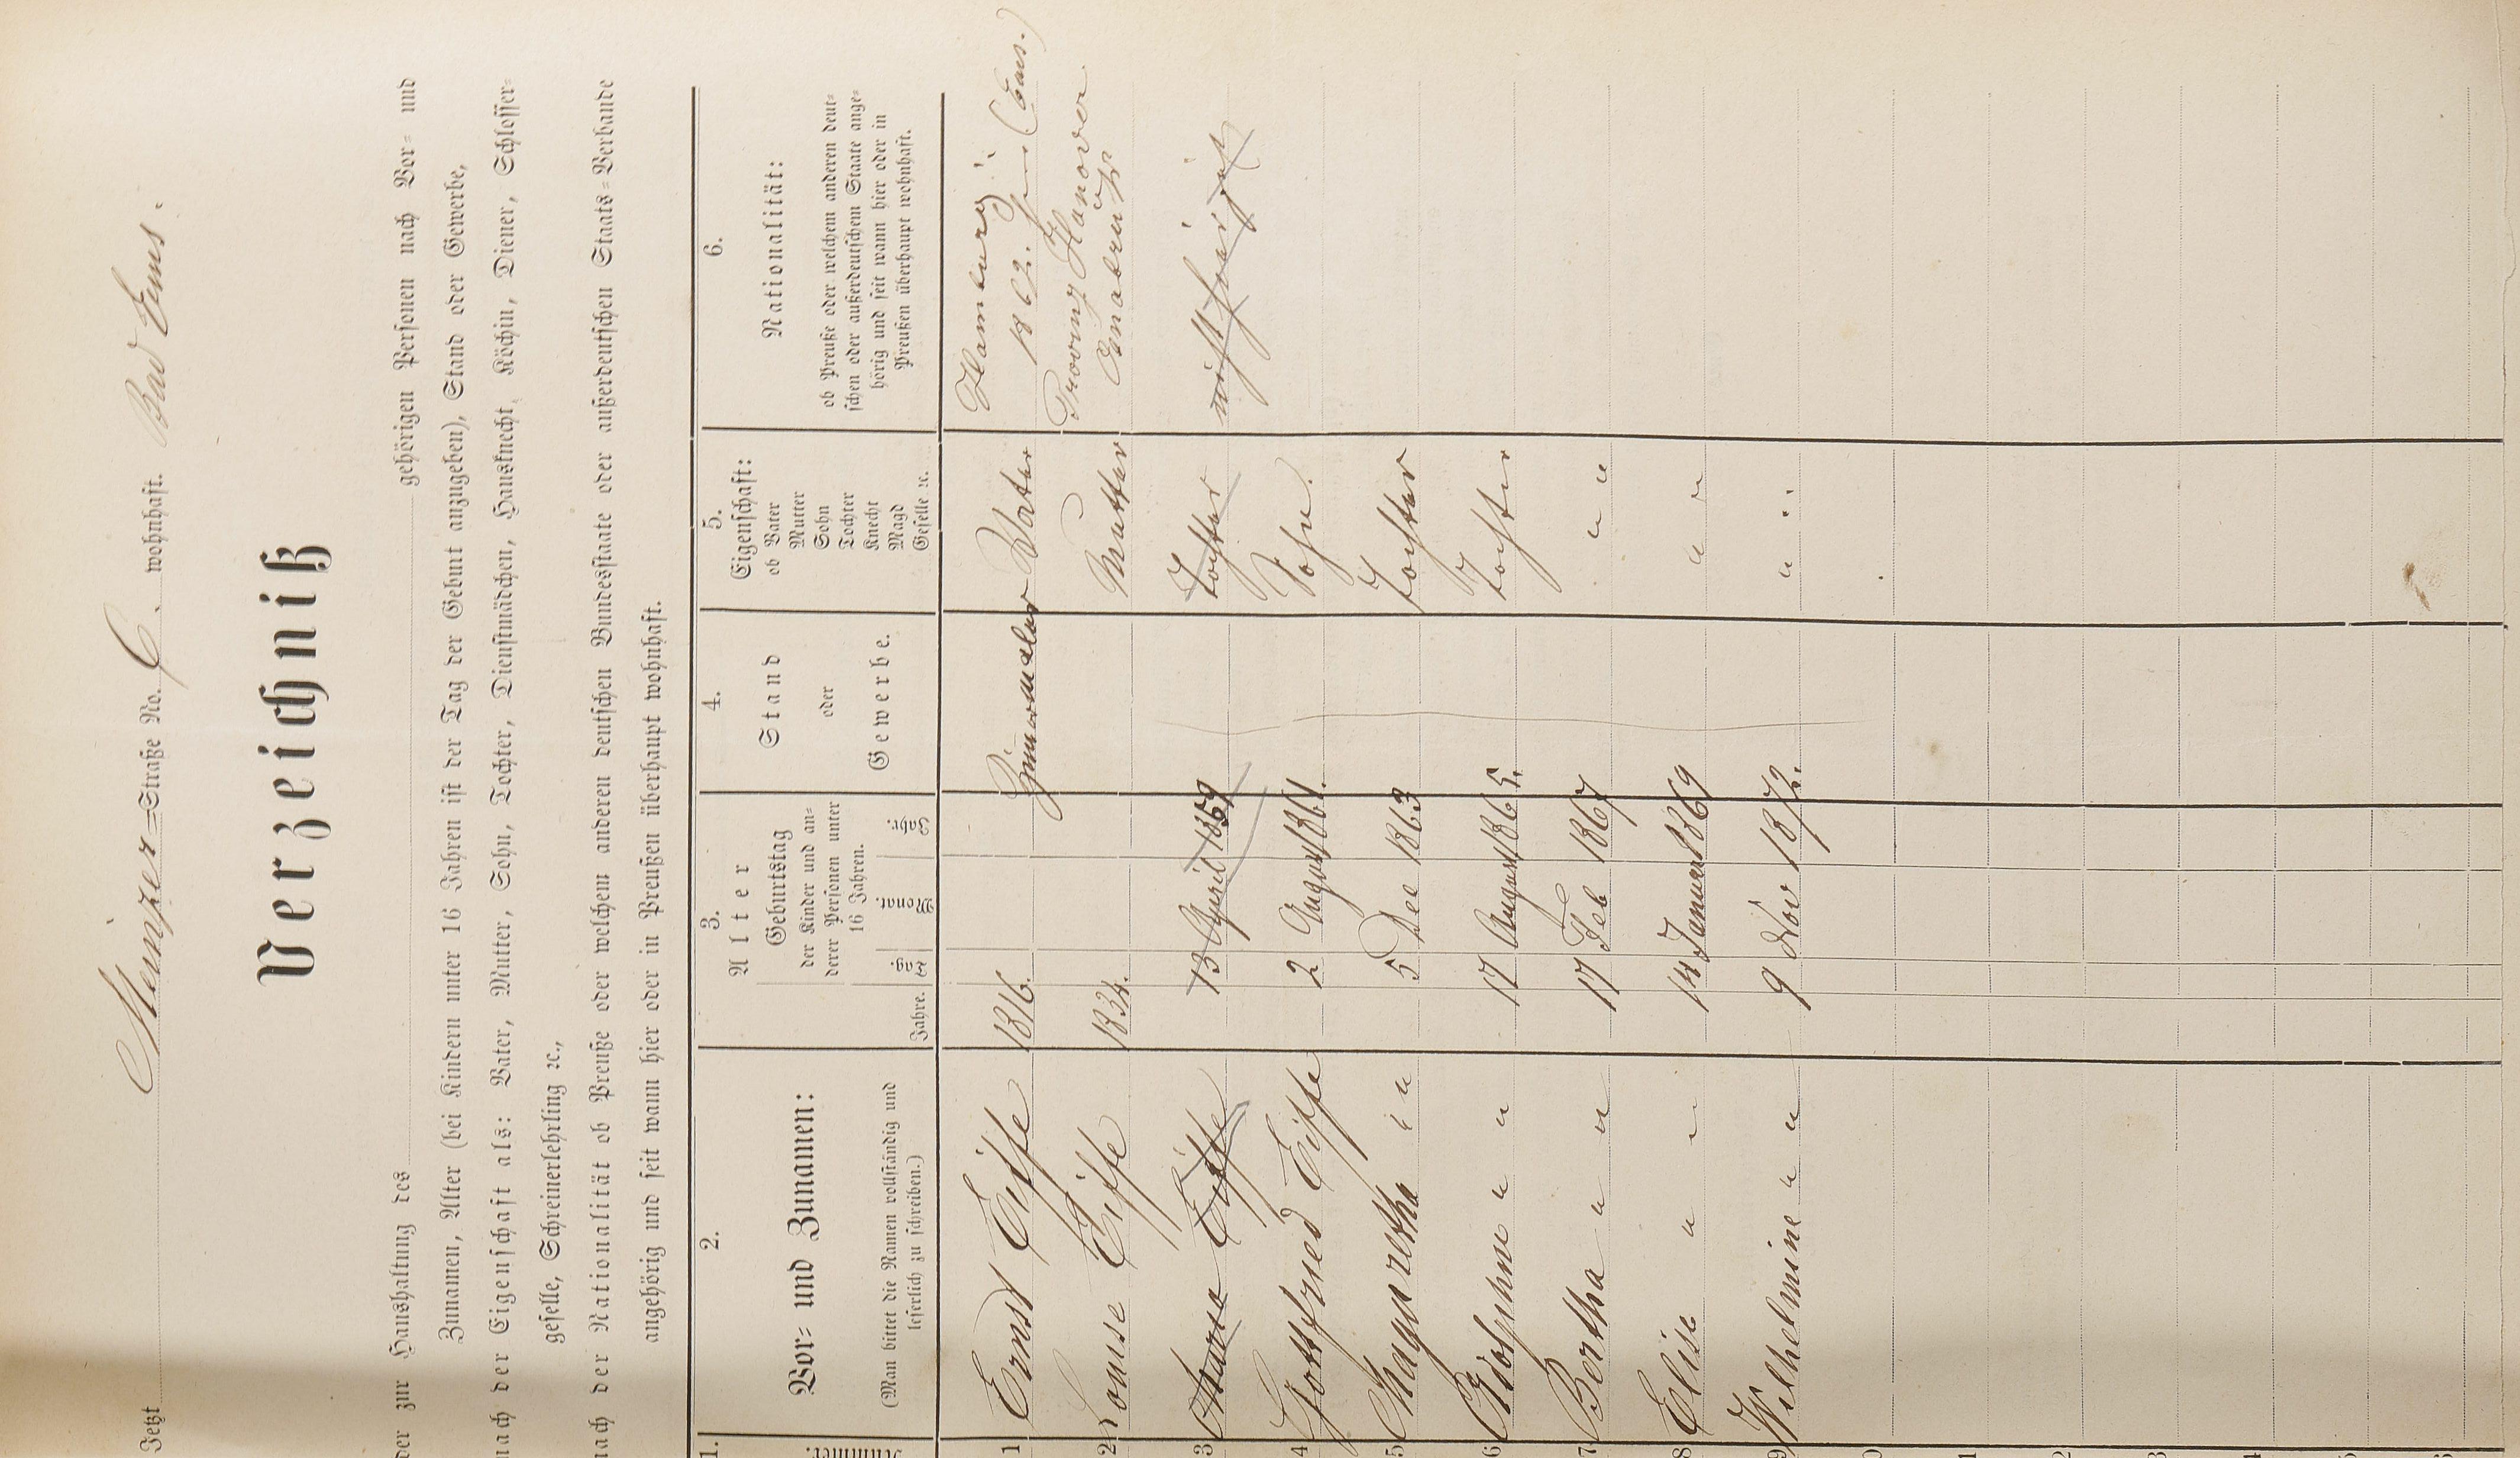 Jetzt Mainzer=Straße No. 6. wohnhaft. Bad Ems.
Verzeichniß
der zur Haushaltung des gehörigen Personen nach Vor= und
Zunamen, Alter (bei Kindern unter 16 Jahren ist der Tag der Geburt anzugeben), Stand oder Gewerbe,
nach der Eigenschaft als: Vater, Mutter, Sohn, Tochter, Dienstmädchen, Hausknecht, Köchin, Diener, Schlosser=
geselle, Schreinerlehrling ꝛc.,
nach der Nationalität ob Preuße oder welchem anderen deutschen Bundesstaate oder außerdeutschen Staats=Verbande
angehörig und seit wann hier oder in Preußen überhaupt wohnhaft.
1. 2. 3. 4. 5. 6.
Nummer.
Vor= und Zunamen:
(Man bittet die Namen vollständig und
leserlich zu schreiben.)
Alter
Jahre.
Geburtstag
der Kinder und an=
derer Personen unter
16 Jahren.
Tag. Monat. Jahr.
Stand
oder
Gewerbe.
Eigenschaft:
ob Vater
Mutter
Sohn
Tochter
Knecht
Magd
Geselle ꝛc.
Nationalität:
ob Preuße oder welchem anderen deut=
schen oder außerdeutschem Staate ange=
hörig und seit wann hier oder in
Preußen überhaupt wohnhaft.
1 Ernst Eiffe 1816. Vater Hamburg
1862. (Ems.)
2 Louise Eiffe 1834. Mutter Provinz Hanover
Osnabrück
3 Maria Eiffe 13 April 1859 Tochter nicht hier
4 Gottfried Eiffe 2 August 1861. Sohn.
5 Magaretha " " 5 Dec 1863 Tochter
6 Adolphine " " 17 August 1865. Tochter
7 Bertha " " 17 Feb 1867 " "
8 Elise " " 14 Januar 1869 " "
9 Wilhelmine " " 9 Nov 1872. " "